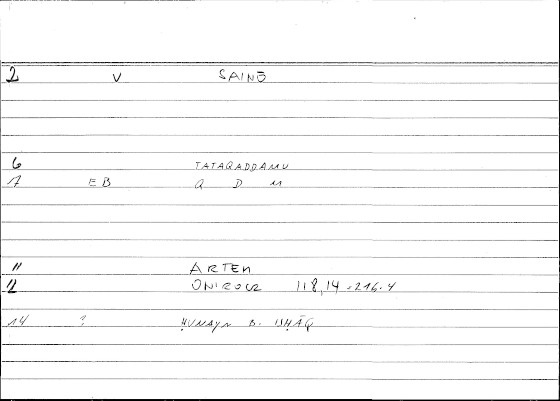 2 V SAINŌ
6 TATAQADDAMU
7 EB Q D M
11 ARTEM
12 ONIROCR 118,14-216.4
14 ? ḤUNAYN B. ISḤĀQ